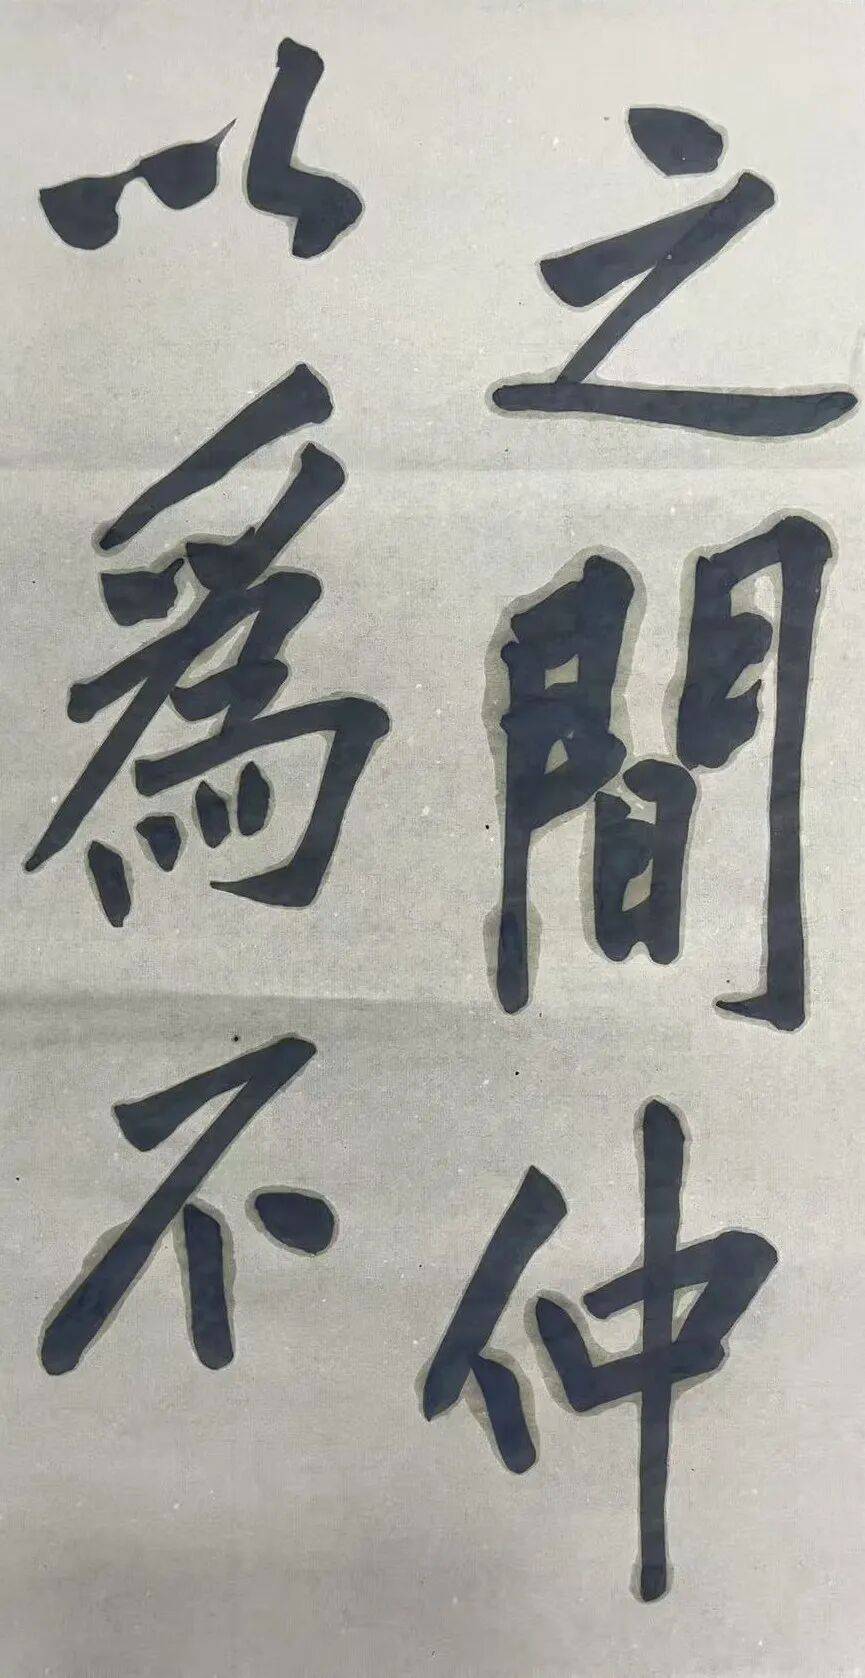 之間仲
以爲不